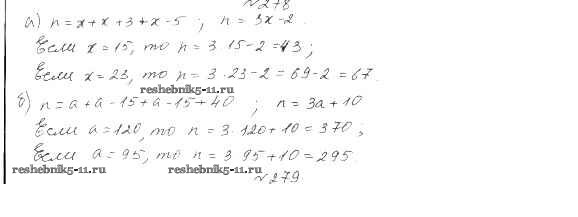 №278
а) n = x + x + 3 + x - 5 ; n = 3x - 2.
Если x = 15, то n = 3·15 - 2 = 43 ;
Если x = 23, то n = 3·23 - 2 = 69 - 2 = 67.
reshebnik5-11.ru
б) n = a + a - 15 + a - 15 + 40 ; n = 3a + 10
Если a = 120, то n = 3·120 + 10 = 370 ;
Если a = 95, то n = 3 95 + 10 = 295.
reshebnik5-11.ru reshebnik5-11.ru
№279